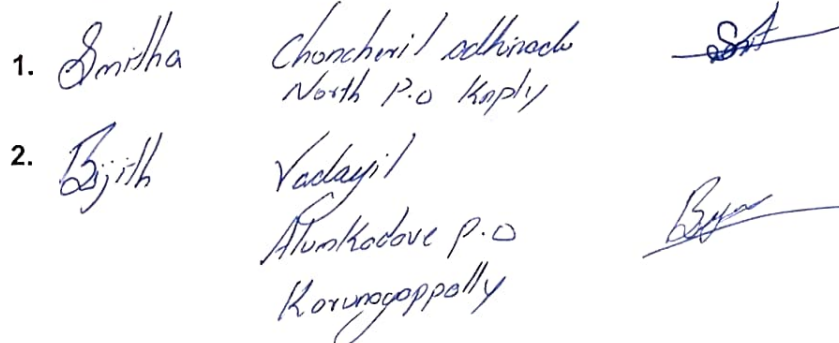 1. Smitha Choncheril adhinadu
North P.O Knply
2. Bijith Vadayil
Alumkadave P.O
Karunagappally